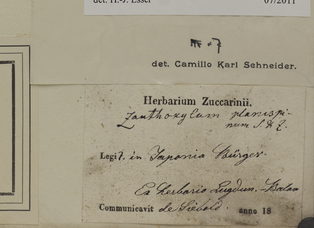 det. H.-J. Esser 07/2011
det. Camillo Karl Schneider.
Herbarium Zuccarinii.
Zanthoxylum planispi-
num S. & Z.
Legit. in Japonia Bürger
Ex herbario Lugdun. Batav
Communicavit de Siebold. anno 18